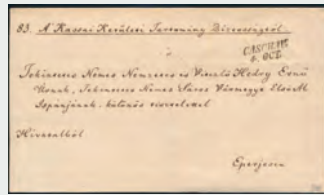 83. A Kassai Kerületi Tartomány Biztosságtól.
CASCHAU
4. OCT.
Tekintetes Nemes Nemzetes és Vitézlő Hedry Ernő
Urnak, Tekintetes Nemes Sáros Vármegye Első Al
Ispánjának, különös tisztelettel
Hivatalból
Eperjesen